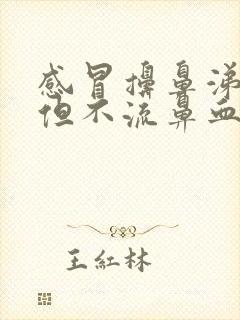 感冒擤鼻涕
但不流鼻血
王紅林